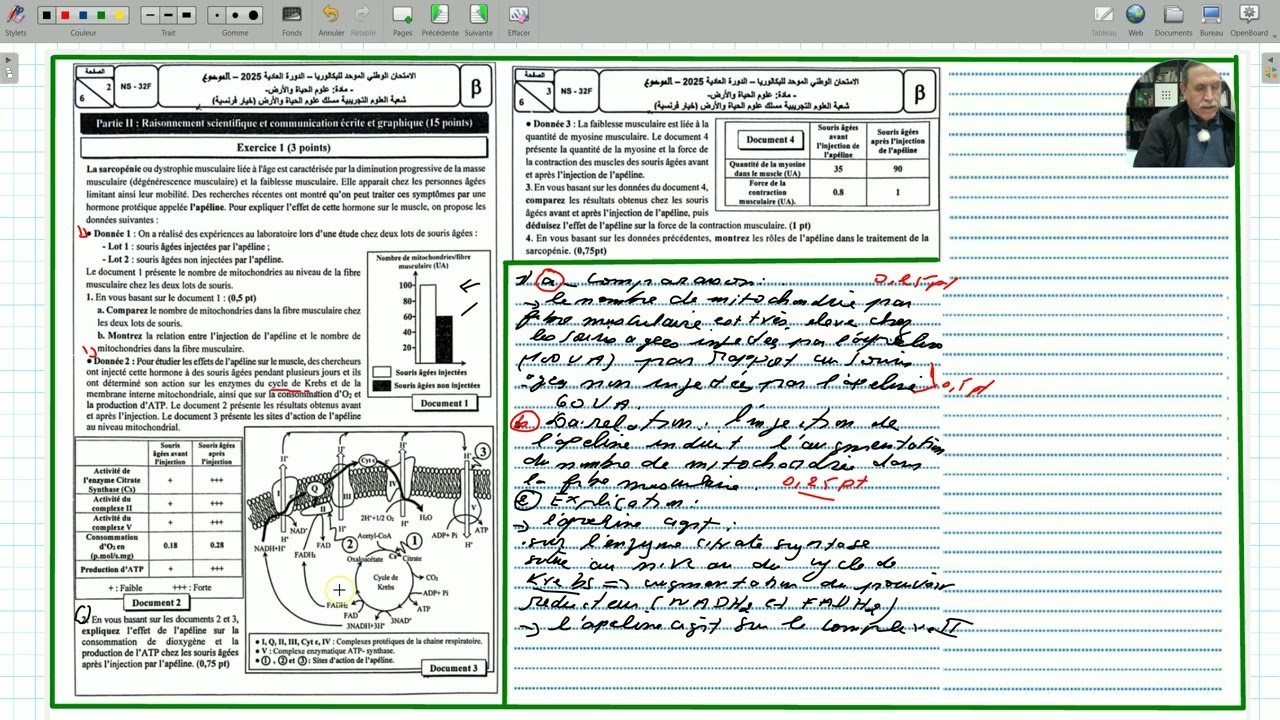 Stylets
Couleur
Trait
Gomme
Fonds
Annuler
Rétablir
Pages
Précédente
Suivante
Effacer
Tableau
Web
Documents
Bureau
OpenBoard
الصفحة
2
6
NS - 32F
الامتحان الوطني الموحد للبكالوريا – الدورة العادية 2025 – الموضوع
- مادة: علوم الحياة والأرض-
شعبة العلوم التجريبية مسلك علوم الحياة والأرض (خيار فرنسية)
β
Partie II : Raisonnement scientifique et communication écrite et graphique (15 points)
Exercice 1 (3 points)
La sarcopénie ou dystrophie musculaire liée à l'âge est caractérisée par la diminution progressive de la masse
musculaire (dégénérescence musculaire) et la faiblesse musculaire. Elle apparait chez les personnes âgées
limitant ainsi leur mobilité. Des recherches récentes ont montré qu'on peut traiter ces symptômes par une
hormone protéique appelée l'apéline. Pour expliquer l'effet de cette hormone sur le muscle, on propose les
données suivantes :
• Donnée 1 : On a réalisé des expériences au laboratoire lors d'une étude chez deux lots de souris âgées :
- Lot 1 : souris âgées injectées par l'apéline ;
- Lot 2 : souris âgées non injectées par l'apéline.
Le document 1 présente le nombre de mitochondries au niveau de la fibre
musculaire chez les deux lots de souris.
1. En vous basant sur le document 1 : (0,5 pt)
a. Comparez le nombre de mitochondries dans la fibre musculaire chez
les deux lots de souris.
b. Montrez la relation entre l'injection de l'apéline et le nombre de
mitochondries dans la fibre musculaire.
• Donnée 2 : Pour étudier les effets de l'apéline sur le muscle, des chercheurs
ont injecté cette hormone à des souris âgées pendant plusieurs jours et ils
ont déterminé son action sur les enzymes du cycle de Krebs et de la
membrane interne mitochondriale, ainsi que sur la consommation d'O₂ et
la production d'ATP. Le document 2 présente les résultats obtenus avant
et après l'injection. Le document 3 présente les sites d'action de l'apéline
au niveau mitochondrial.
Nombre de mitochondries/fibre
musculaire (UA)
100
80
60
40
20
Souris âgées injectées
Souris âgées non injectées
Document 1
Souris âgées avant l'injection
Souris âgées après l'injection
Activité de l'enzyme Citrate Synthase (Cs) + +++
Activité du complexe II + +++
Activité du complexe V + +++
Consommation d'O₂ en (p.mol/s.mg) 0.18 0.28
Production d'ATP + +++
+ : Faible +++ : Forte
Document 2
2 En vous basant sur les documents 2 et 3,
expliquez l'effet de l'apéline sur la
consommation de dioxygène et la
production de l'ATP chez les souris âgées
après l'injection par l'apéline. (0,75 pt)
H⁺ H⁺ H⁺ H⁺ 3
I Q II III Cyt c IV V
NADH+H⁺ NAD⁺ FADH₂ FAD 2H⁺+1/2 O₂ H₂O H⁺ ADP+ Pi ATP
2 Acetyl-CoA 1
Oxaloacétate Cs Citrate
Cycle de Krebs
CO₂
ADP+ Pi
ATP
FADH₂
FAD
3NAD⁺
3NADH+H⁺
• I, Q, II, III, Cyt c, IV : Complexes protéiques de la chaine respiratoire.
• V : Complexe enzymatique ATP- synthase.
• 1, 2 et 3 : Sites d'action de l'apéline.
Document 3
الصفحة
3
6
NS - 32F
الامتحان الوطني الموحد للبكالوريا – الدورة العادية 2025 – الموضوع
- مادة: علوم الحياة والأرض-
شعبة العلوم التجريبية مسلك علوم الحياة والأرض (خيار فرنسية)
β
• Donnée 3 : La faiblesse musculaire est liée à la
quantité de myosine musculaire. Le document 4
présente la quantité de la myosine et la force de
la contraction des muscles des souris âgées avant
et après l'injection de l'apéline.
3. En vous basant sur les données du document 4,
comparez les résultats obtenus chez les souris
âgées avant et après l'injection de l'apéline, puis
déduisez l'effet de l'apéline sur la force de la contraction musculaire. (1 pt)
4. En vous basant sur les données précédentes, montrez les rôles de l'apéline dans le traitement de la
sarcopénie. (0,75pt)
Document 4
Souris âgées avant l'injection de l'apéline
Souris âgées après l'injection de l'apéline
Quantité de la myosine dans le muscle (UA) 35 90
Force de la contraction musculaire (UA). 0.8 1
1) a - Comparaison : 0,25pt
→ le nombre de mitochondrie par
fibre musculaire est très élevé chez
les souris agées injectées par l'apéline
(100 UA) par rapport au souris
agées non injectée par l'apeline 0,5 pt
60 UA.
b La relation : l'injection de
l'apeline induit l'augmentation
du nombre de mitochondrie dans
la fibre musculaire. 0,25 pt
2 Explication :
→ l'apeline agit :
. sur l'enzyme citrate syntase
au niveau du cycle de
Krebs ⇒ augmentation du pouvoir
reducteur (NADH₂ et FADH₂)
→ l'apeline agit sur le complexe II